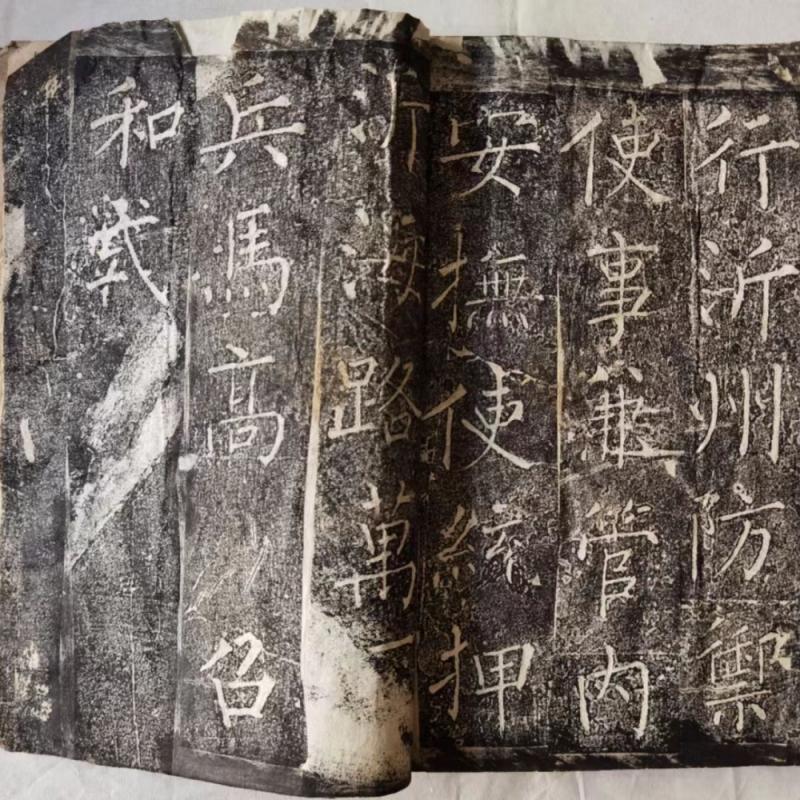 行沂州防禦
使事兼管内
安撫使統押
沂海路萬
兵馬高召
和